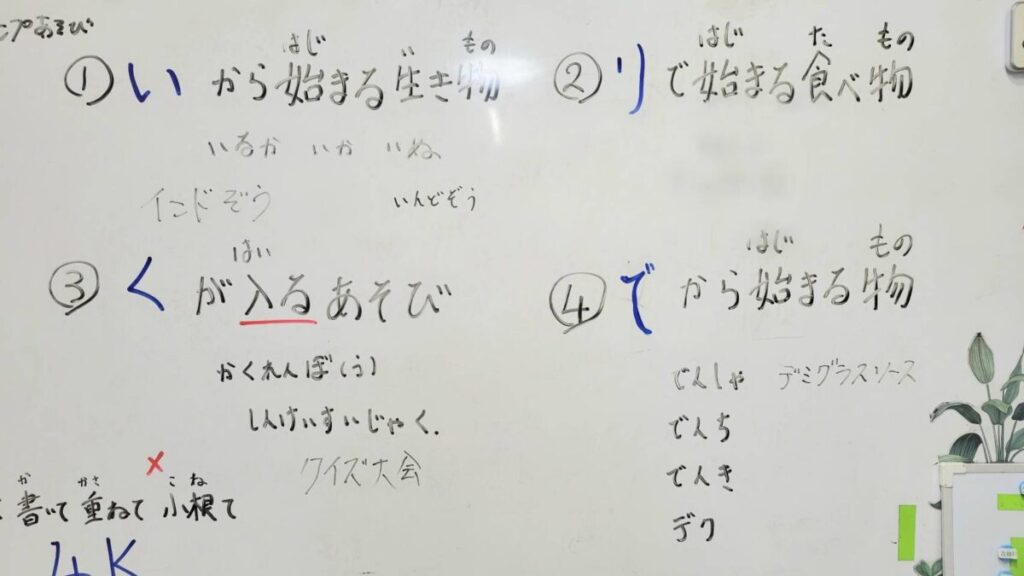 ンプあそび
①いから始まる生き物
はじ い もの
いるか いか いぬ
インドぞう いんどぞう
②りで始まる食べ物
はじ た もの
③くが入るあそび
はい
かくれんぼ(う)
しんけいすいじゃく.
クイズ大会
④でから始まる物
はじ もの
でんしゃ デミグラスソース
でんち
でんき
デク
×
か かさ こね
書いて重ねて小根て
4K